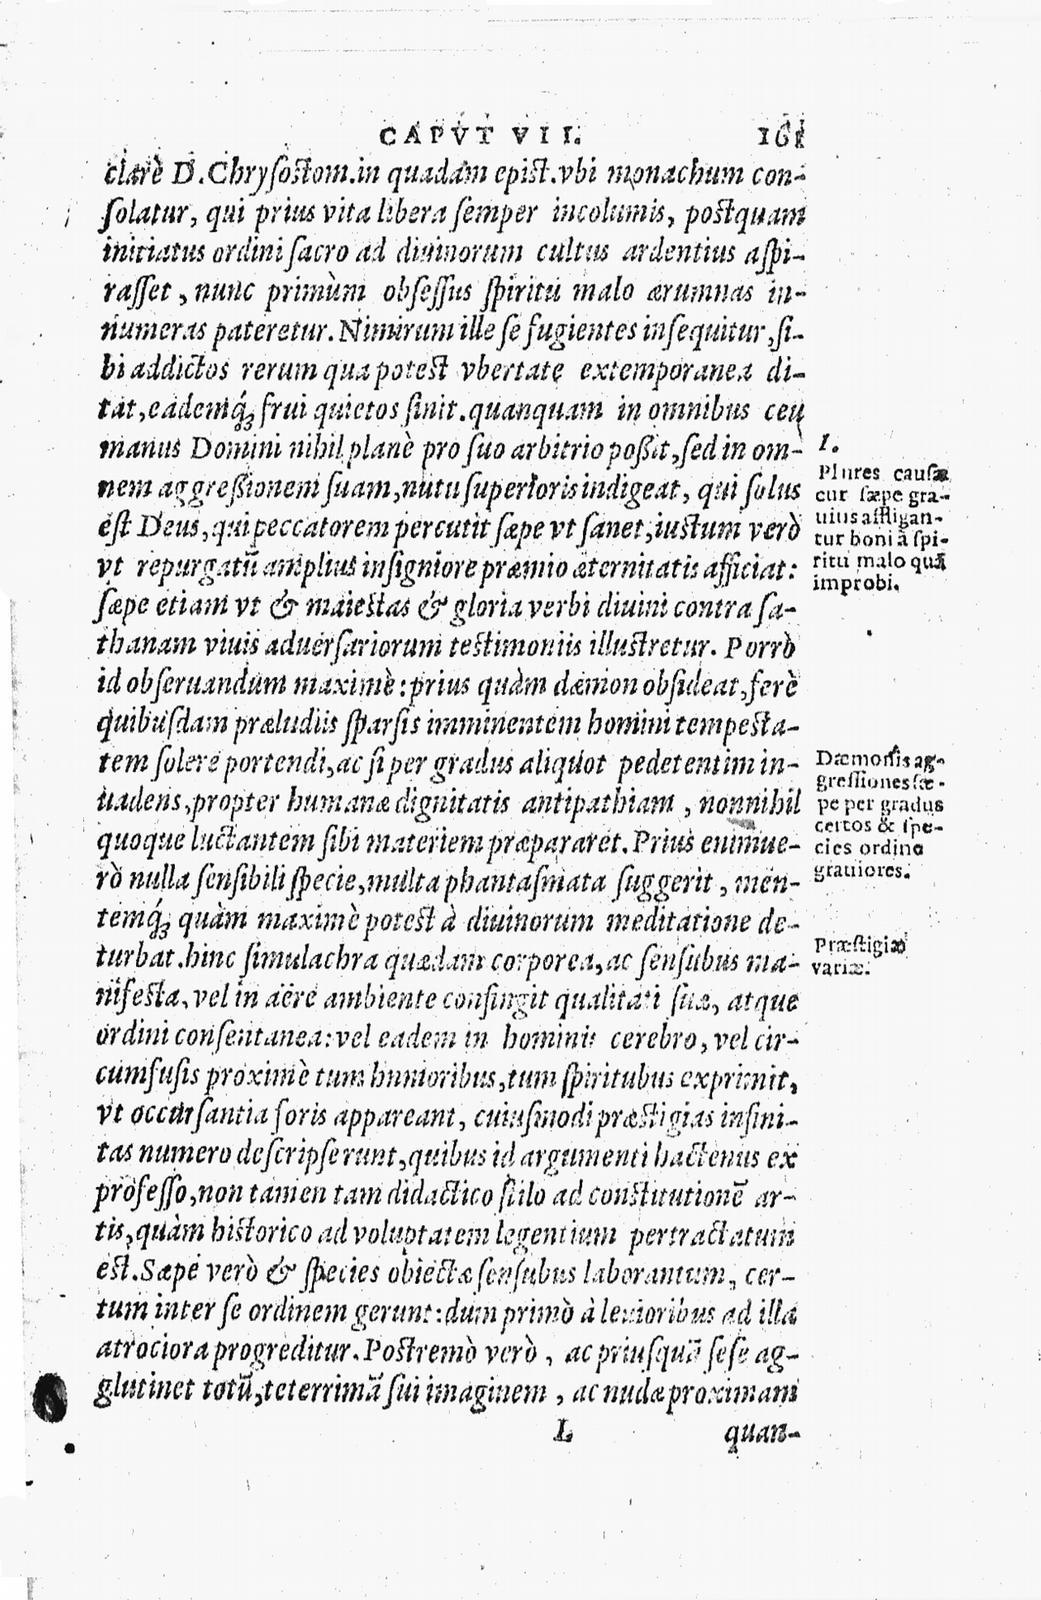 CAPVT VII. 161
clarè D. Chrysostom. in quadam epist. vbi monachum con-
solatur, qui prius vita libera semper incolumis, postquam
initiatus ordini sacro ad diuinorum cultus ardentius aspi-
rasset, nunc primùm obsessus spiritu malo ærumnas in-
numeras pateretur. Nimirum ille se fugientes insequitur, si-
bi addictos rerum qua potest vbertate extemporanea di-
tat, eademq́; frui quietos sinit. quanquam in omnibus ceu
manus Domini nihil planè pro suo arbitrio possit, sed in om-
nem aggressionem suam, nutu superioris indigeat, qui solus
est Deus, qui peccatorem percutit sæpe vt sanet, iustum verò
vt repurgatũ amplius insigniore præmio æternitatis afficiat:
sæpe etiam vt & maiestas & gloria verbi diuini contra sa-
thanam viuis aduersariorum testimoniis illustretur. Porrò
id obseruandum maximè: prius quàm dæmon obsideat, ferè
quibusdam præludiis sparsis imminentem homini tempesta-
tem solere portendi, ac si per gradus aliquot pedetentim in-
uadens, propter humanæ dignitatis antipathiam, nonnihil
quoque luctantem sibi materiem præpararet. Prius enimue-
rò nulla sensibili specie, multa phantasmata suggerit, men-
temq́; quàm maximè potest à diuinorum meditatione de-
turbat. hinc simulachra quædam corporea, ac sensubus ma-
nifesta, vel in aëre ambiente confingit qualitati suæ, atque
ordini consentanea: vel eadem in hominis cerebro, vel cir-
cumfusis proximè tum humoribus, tum spiritubus exprimit,
vt occursantia foris appareant, cuiusmodi præstigias infini-
tas numero descripserunt, quibus id argumenti hactenus ex
professo, non tamen tam didactico stilo ad constitutionẽ ar-
tis, quàm historico ad voluptatem legentium pertractatum
est. Sæpe verò & species obiectæ sensubus laborantum, cer-
tum inter se ordinem gerunt: dum primò à leuioribus ad illa
atrociora progreditur. Postremò verò, ac priusquã sese ag-
glutinet totũ, teterrimã sui imaginem, ac nudæ proximam
L quan-
I.
Plures causæ
cur sæpe gra-
uius affligan-
tur boni à spi-
ritu malo quã
improbi.
Dæmonis ag-
gressiones sæ-
pe per gradus
certos & spe-
cies ordine
grauiores.
Præstigiæ
variæ.